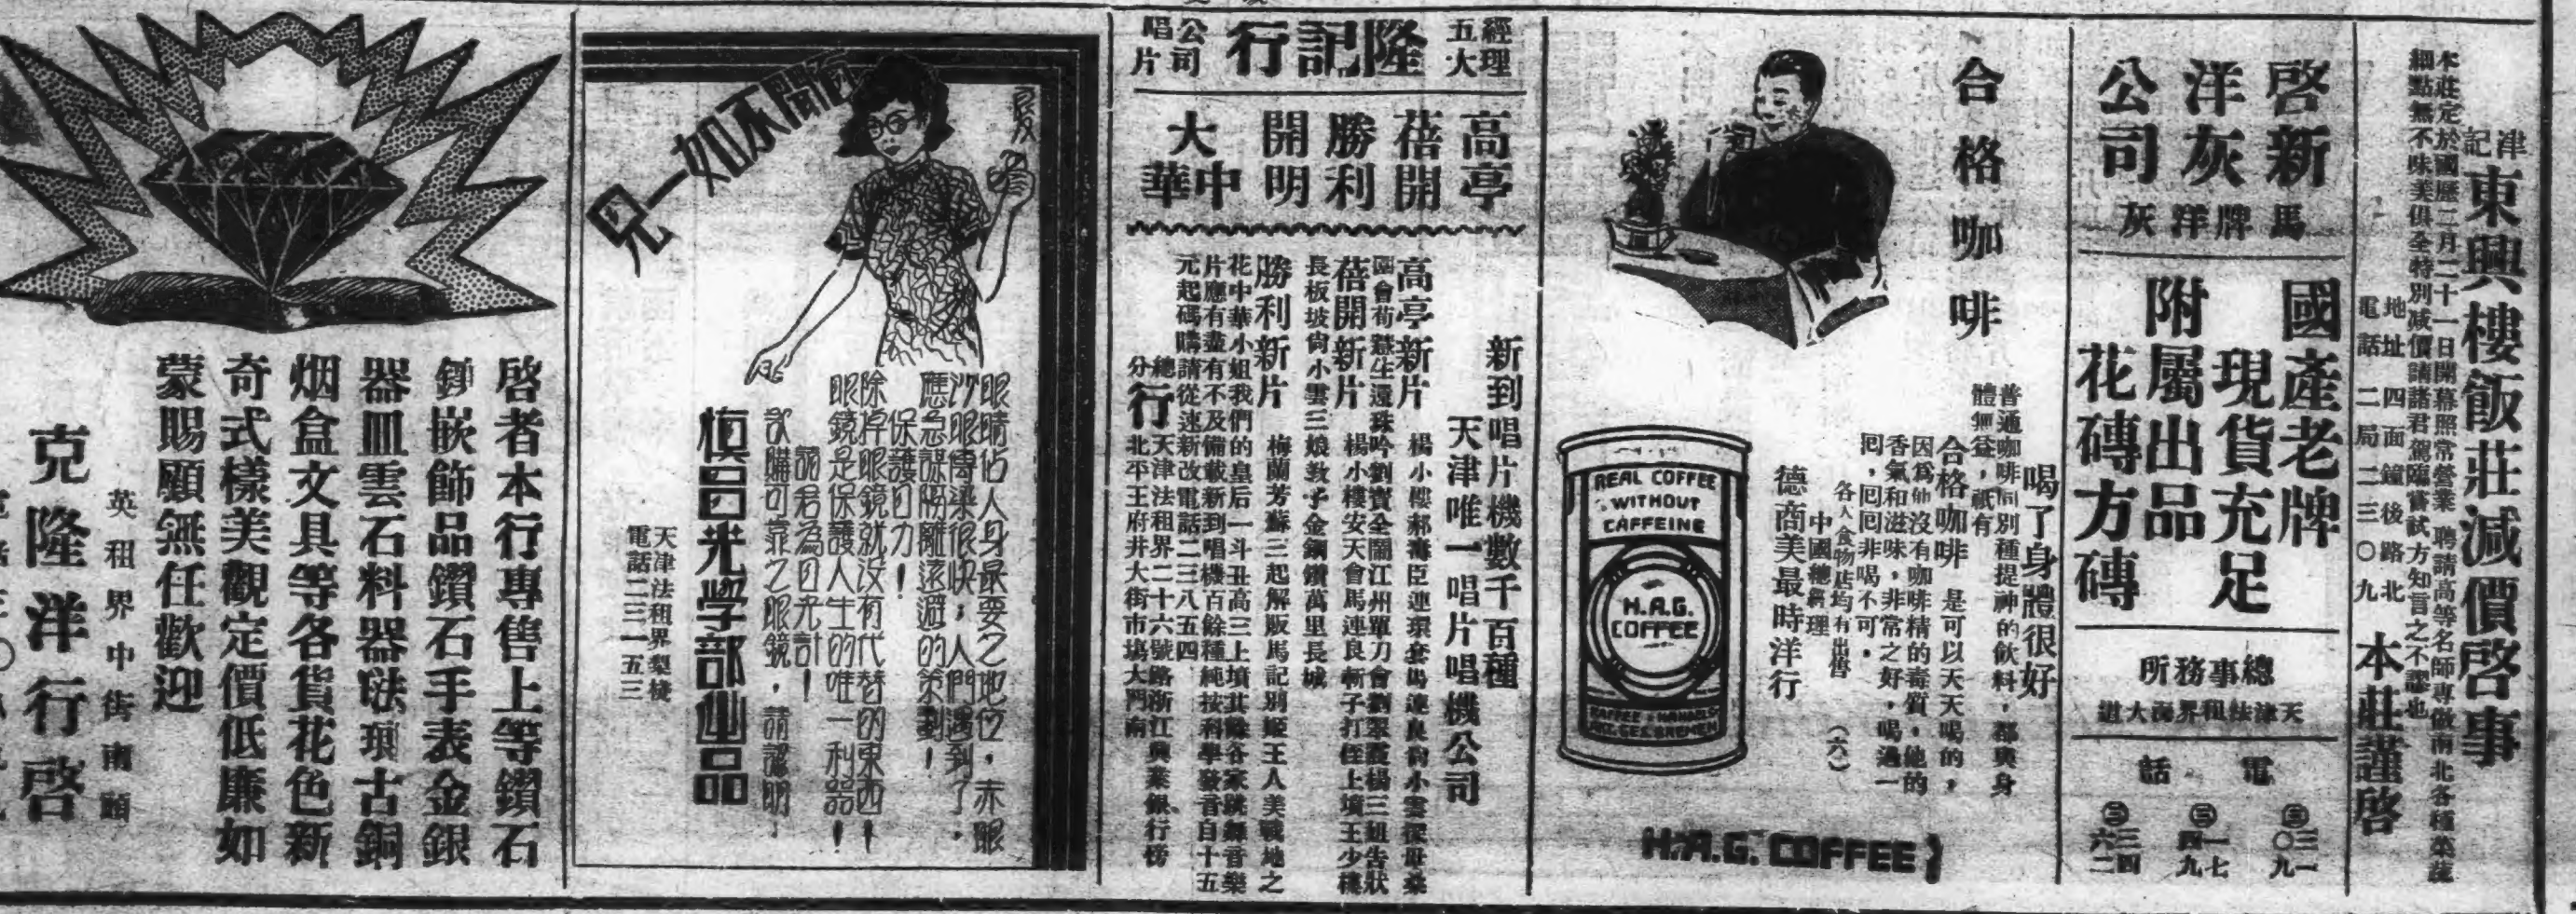 津記
東興樓飯莊減價啓事
本莊定於國歷二月二十一日開幕照常營業 聘請高等名師專做南北各種菜蔬
細點無不味美俱全特別减價請諸君駕臨嘗試方知言之不謬也
地址 四面鐘後路北
電話 二局二三〇九
本莊謹啓
啓新
洋灰
公司
馬牌洋灰
國產老牌
現貨充足
附屬出品
花磚方磚
總事務所
天津法租界海大道
電話
合格咖啡
喝了身體很好
普通咖啡同別種提神的飲料，都與身
體無益，祇有
合格咖啡 是可以天天喝的，
因為他沒有咖啡精的毒質，他的
香氣和滋味，非常之好，喝過一
囘，囘囘非喝不可．
各大食物店均有出售
中國總經理
德商美最時洋行
(六)
REAL COFFEE
WITHOUT
CAFFEINE
H.A.G.
COFFEE
H.A.G. COFFEE
經理
五大
隆記行
唱片
公司
高亭
蓓開
勝利
開明
大中華
新到唱片機數千百種
天津唯一唱片唱機公司
高亭新片
蓓開新片
長板坡尙小雲三娘教子金鋼鑽萬里長城
勝利新片 梅蘭芳蘇三起解販馬記別姬王人美戰地之
花中華小姐我們的皇后一斗丑高三上墳其餘各家跳舞音樂
片應有盡有不及備載新到唱機百餘種純按科學發音自十五
元起碼購請從速新改電話二三八五四
總行 天津法租界二十六號路浙江興業銀行傍
分行 北平王府井大街市塲大門南
百聞不如一見
眼睛佔人身最要之地位，赤眼
沙眼傳染很快；人們遇到了．
應急謀隔離遠避的策劃！
保護目力！
除掉眼鏡就沒有代替的東西！
眼鏡是保護人生的唯一利器！
諸君為目光計！
欲購可靠之眼鏡，請認明．
光學部出品
天津法租界梨棧
電話二三一五三
啓者本行專售上等鑽石
鑲嵌飾品鑽石手表金銀
器皿雲石料器琺瑯古銅
烟盒文具等各貨花色新
奇式樣美觀定價低廉如
蒙賜顧無任歡迎
英租界中街南頭
克隆洋行啓